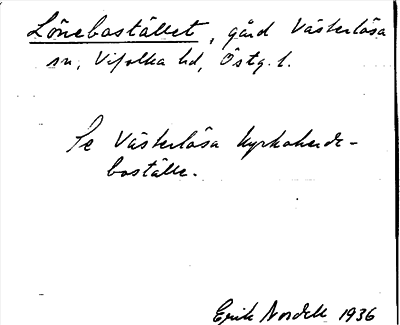 Lönebostället, gård Västerlösa
sn, Vifolka hd, Östg. l.
Se Västerlösa kyrkoherde-
boställe.
Erik Nordell 1936